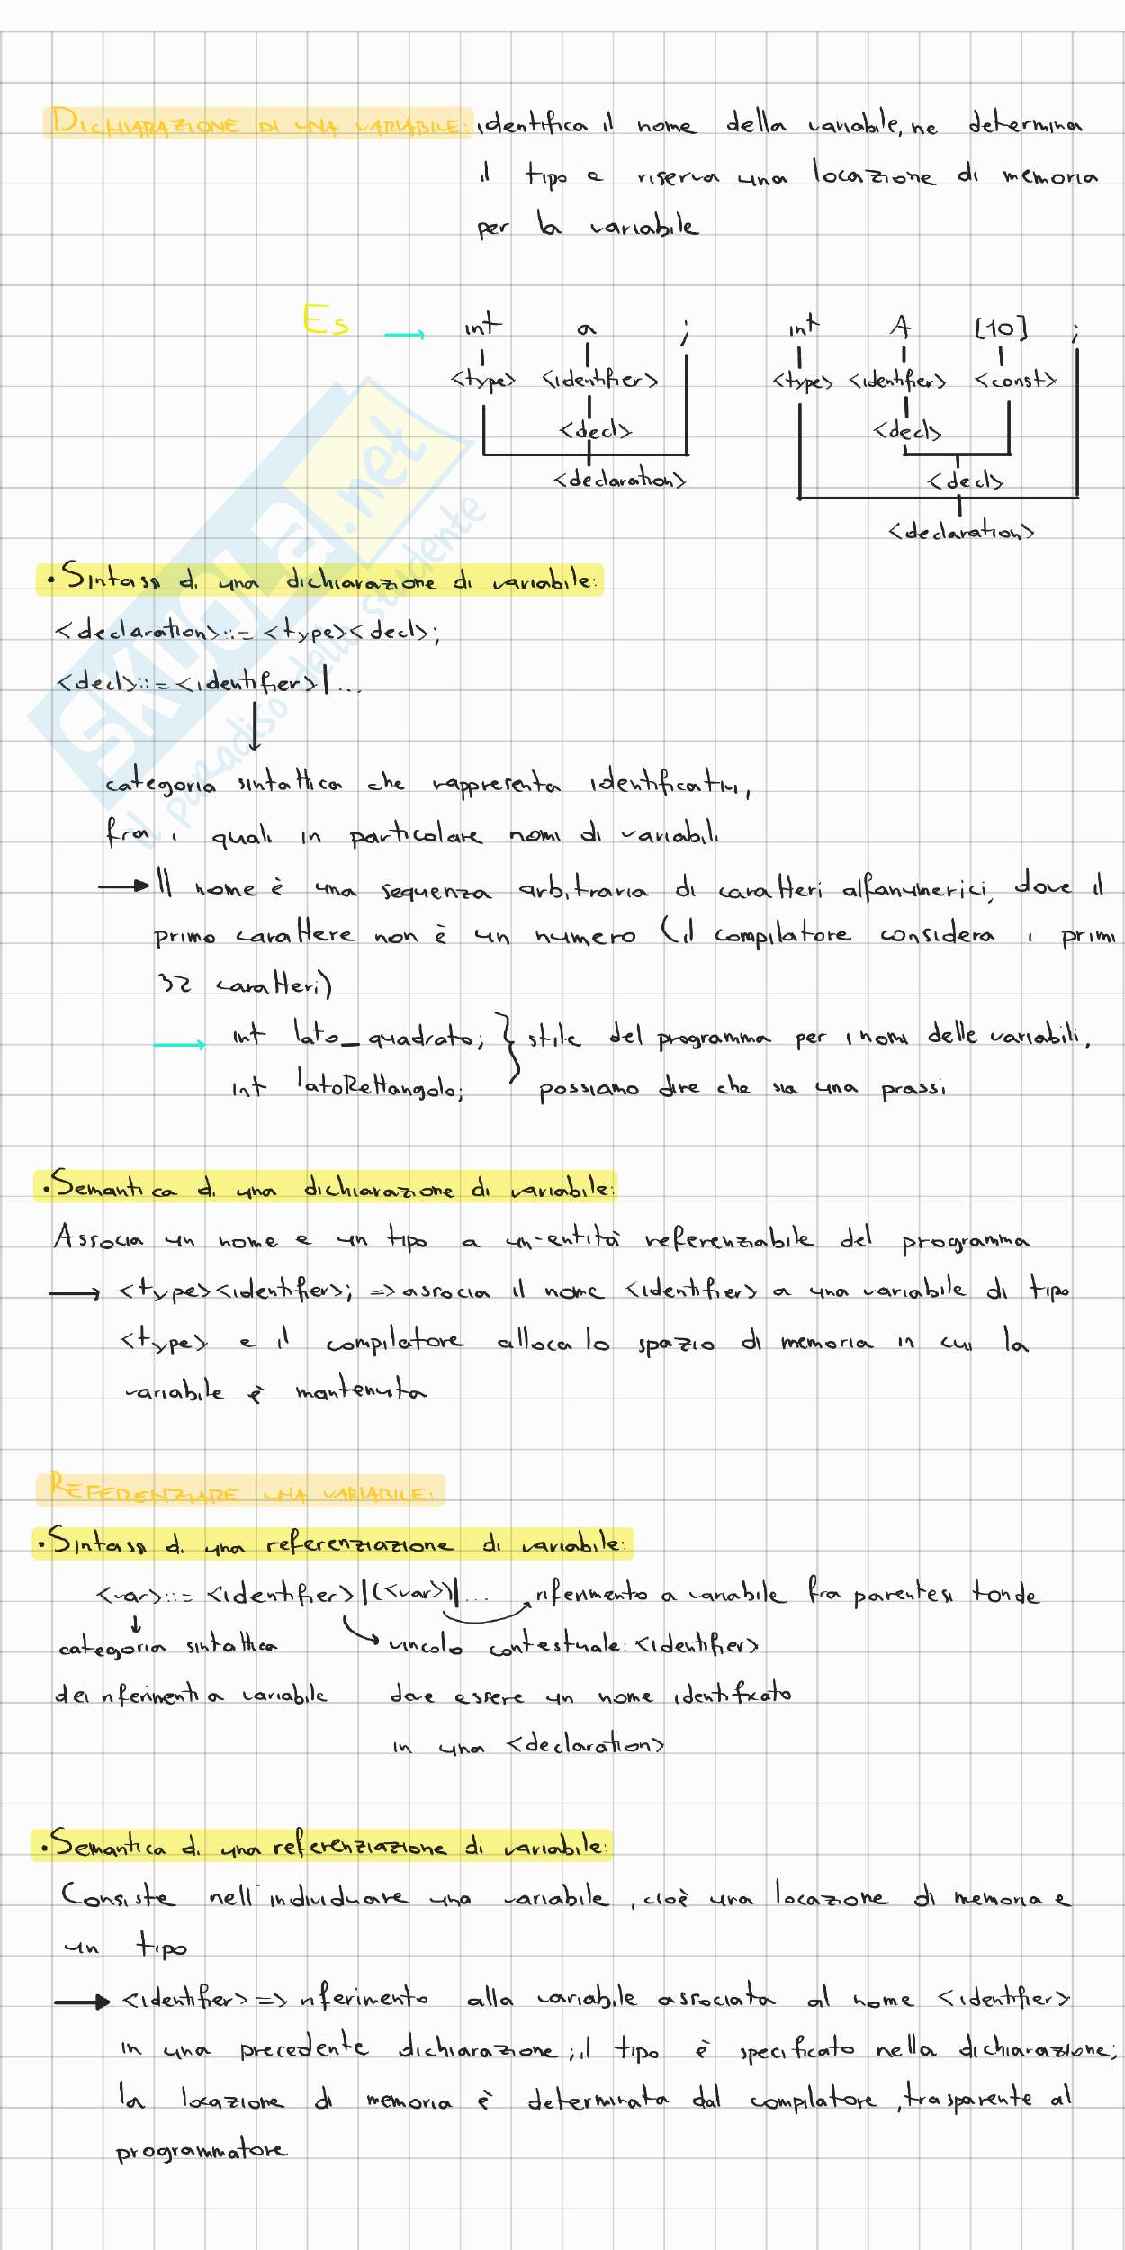 DICHIARAZIONE DI UNA VARIABILE: identifica il nome della variabile, ne determina
il tipo e riserva una locazione di memoria
per la variabile
Es → int a ; int A [10] ;
<type> <identifier> <type> <identifier> <const>
<decl> <decl>
<declaration> <decl>
<declaration>
• Sintassi di una dichiarazione di variabile:
<declaration>::= <type><decl>;
<decl>::= <identifier>|...
categoria sintattica che rappresenta identificatori,
fra i quali in particolare nomi di variabili
→ Il nome è una sequenza arbitraria di caratteri alfanumerici, dove il
primo carattere non è un numero (il compilatore considera i primi
32 caratteri)
→ int lato_quadrato; } stile del programma per i nomi delle variabili,
int latoRettangolo; possiamo dire che sia una prassi
• Semantica di una dichiarazione di variabile:
Associa un nome e un tipo a un'entità referenziabile del programma
→ <type><identifier>; => associa il nome <identifier> a una variabile di tipo
<type> e il compilatore alloca lo spazio di memoria in cui la
variabile è mantenuta
REFERENZIARE UNA VARIABILE:
• Sintassi di una referenziazione di variabile:
<var>::= <identifier>|(<var>)|... riferimento a variabile fra parentesi tonde
categoria sintattica vincolo contestuale: <identifier>
dei riferimenti a variabile deve essere un nome identificato
in una <declaration>
• Semantica di una referenziazione di variabile:
Consiste nell'individuare una variabile, cioè una locazione di memoria e
un tipo
→ <identifier> => riferimento alla variabile associata al nome <identifier>
in una precedente dichiarazione; il tipo è specificato nella dichiarazione;
la locazione di memoria è determinata dal compilatore, trasparente al
programmatore
SKUOLA.net
il paradiso dello studente